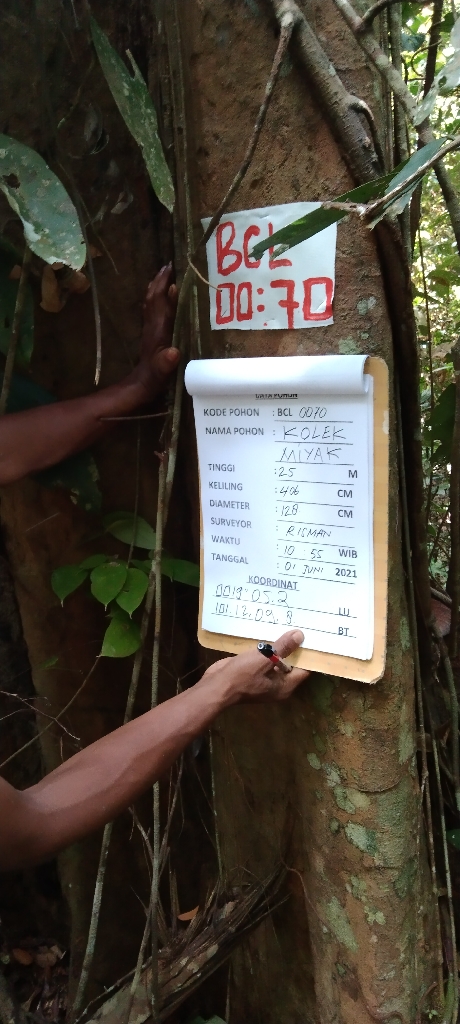 BCL
00:70
DATA POHON
KODE POHON : BCL 0070
NAMA POHON : KOLEK
MIYAK
TINGGI : 25 M
KELILING : 406 CM
DIAMETER : 128 CM
SURVEYOR : RISMAN
WAKTU : 10:55 WIB
TANGGAL : 01 JUNI 2021
KOORDINAT
0018°05.2 LU
101.12.09.8 BT